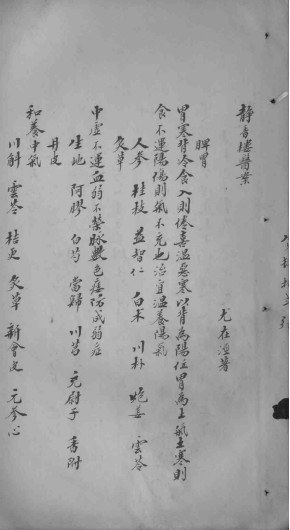 靜香樓醫案
尤在涇著
脾胃
胃寒背冷食入則倦喜溫惡寒以背為陽位胃為土氣土寒則
食不運陽傷則氣不充也治宜溫養陽氣
人參 桂枝 益智仁 白朮 川朴 炮姜 雲苓
炙草
中虛不運血弱不榮脈數色瘁防成弱症
生地 阿膠 白芍 當歸 川芎 充蔚子 香附
丹皮
和養中氣
川斛 雲苓 桔更 炙草 新會皮 元參心